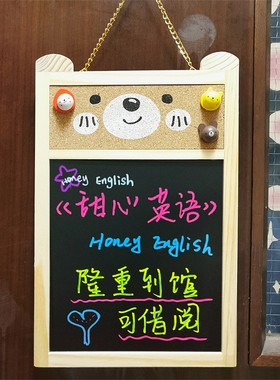 Honey English
《甜心英语》
Honey English
隆重到馆
可借阅